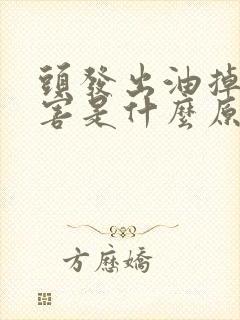 頭發出油掉
害是什麼原
方應嬌